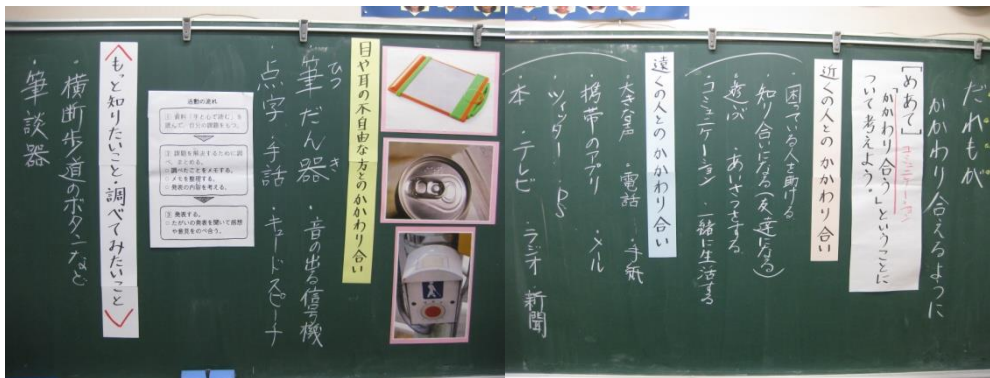 だれもが
かかわり合えるように
[めあて]
「かかわり合う。」ということに
コミュニケーション
ついて考えよう。
近くの人とのかかわり合い
・困っている人を助ける
・知り合いになる(友達になる)
・遊ぶ ・あいさつをする
・コミュニケーション ・一緒に生活する
遠くの人とのかかわり合い
・大きな声 ・電話 ・手紙
・携帯のアプリ ・メール
・ツイッター ・DS
・本 ・テレビ ・ラジオ ・新聞
目や耳の不自由な方とのかかわり合い
ひつ き
・筆だん器 ・音の出る信号機
・点字 ・手話 ・キュードスピーチ
活動の流れ
① 資料「手と心で読む」を
読んで、自分の課題をもつ。
② 課題を解決するために調
べ、まとめる。
□ 調べたことをメモする。
□ メモを整理する。
□ 発表の内容を考える。
③ 発表する。
□ たがいの発表を聞いて感想
や意見をのべ合う。
もっと知りたいこと・調べてみたいこと
・横断歩道のボタンなど
・筆談器